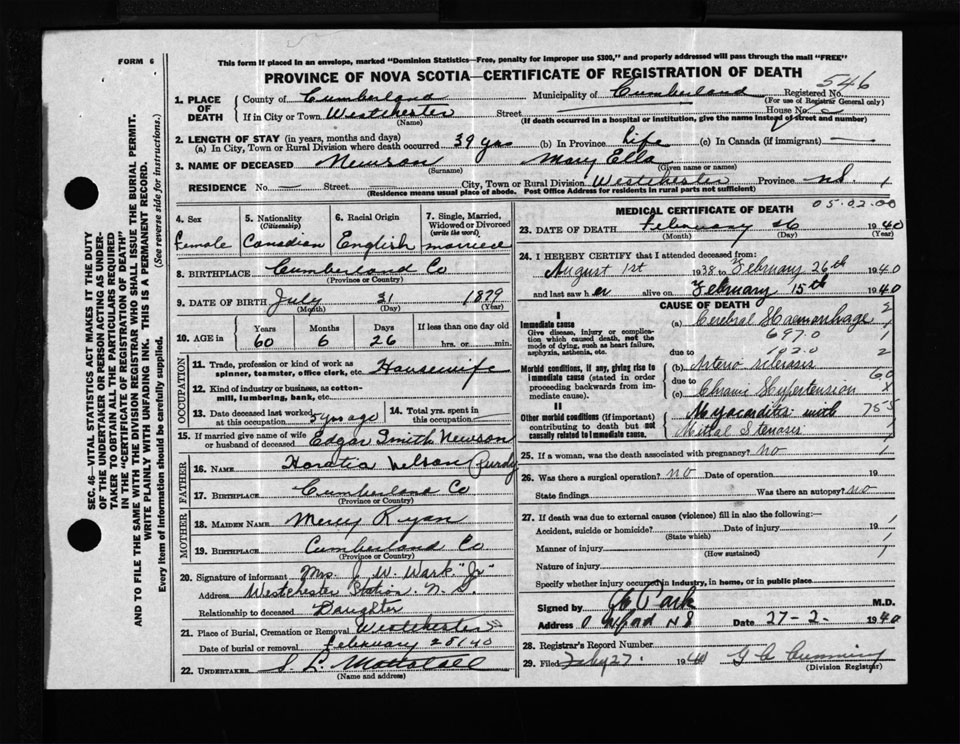 FORM 6
This form if placed in an envelope, marked "Dominion Statistics—Free, penalty for improper use $300," and properly addressed will pass through the mail "FREE"
PROVINCE OF NOVA SCOTIA—CERTIFICATE OF REGISTRATION OF DEATH
546
Registered No.
(For use of Registrar General only)
1. PLACE OF DEATH
County of Cumberland Municipality of Cumberland
If in City or Town Westchester Street House No.
(Name) (If death occurred in a hospital or institution, give the name instead of street and number)
2. LENGTH OF STAY (in years, months and days)
(a) In City, Town or Rural Division where death occurred 39 yrs (b) In Province life (c) In Canada (if immigrant) —
3. NAME OF DECEASED Newson Mary Ella
(Surname) (Given name or names)
RESIDENCE No. — Street — City, Town or Rural Division Westchester Province N.S. 1
(Residence means usual place of abode. Post Office Address for residents in rural parts not sufficient)
SEC. 46—VITAL STATISTICS ACT MAKES IT THE DUTY
OF THE UNDERTAKER OR PERSON ACTING AS UNDER-
TAKER TO OBTAIN ALL THE PARTICULARS REQUIRED
IN THE "CERTIFICATE OF REGISTRATION OF DEATH"
AND TO FILE THE SAME WITH THE DIVISION REGISTRAR WHO SHALL ISSUE THE BURIAL PERMIT.
WRITE PLAINLY WITH UNFADING INK. THIS IS A PERMANENT RECORD.
Every item of Information should be carefully supplied. (See reverse side for instructions.)
4. Sex
Female
5. Nationality
(Citizenship)
Canadian
6. Racial Origin
English
7. Single, Married,
Widowed or Divorced
(write the word)
married
8. BIRTHPLACE Cumberland Co
(Province or Country)
9. DATE OF BIRTH July 31 1879
(Month) (Day) (Year)
10. AGE in
Years Months Days If less than one day old
60 6 26 hrs. or min.
OCCUPATION
11. Trade, profession or kind of work as
spinner, teamster, office clerk, etc. Housewife
12. Kind of industry or business, as cotton-
mill, lumbering, bank, etc.
13. Date deceased last worked
at this occupation 5 yrs ago
14. Total yrs. spent in
this occupation
15. If married give name of wife
or husband of deceased Edgar Smith Newson
FATHER
16. NAME Horatio Nelson Purdy
17. BIRTHPLACE Cumberland Co
(Province or Country)
MOTHER
18. MAIDEN NAME Mercy Ryan
19. BIRTHPLACE Cumberland Co
(Province or Country)
20. Signature of informant Mrs. J. W. Wark. "Jr"
Address Westchester Station. N. S.
Relationship to deceased Daughter
21. Place of Burial, Cremation or Removal Westchester
Date of burial or removal February 28/40
22. UNDERTAKER
(Name and address)
05.02.00
MEDICAL CERTIFICATE OF DEATH
23. DATE OF DEATH February 26 1940
(Month) (Day) (Year)
24. I HEREBY CERTIFY that I attended deceased from:
August 1st 1938 to February 26th 1940
and last saw her alive on February 15th 1940
CAUSE OF DEATH
I
Immediate cause
Give disease, injury or complica-
tion which caused death, not the
mode of dying, such as heart failure,
asphyxia, asthenia, etc.
(a) Cerebral Haemorrhage
due to
Morbid conditions, if any, giving rise to
immediate cause (stated in order
proceeding backwards from im-
mediate cause).
(b) Arterio sclerosis
due to
(c) Chronic Hypertension
II
Other morbid conditions (if important)
contributing to death but not
causally related to immediate cause.
Myocarditis with
Mitral Stenosis
25. If a woman, was the death associated with pregnancy? no
26. Was there a surgical operation? no Date of operation 19
State findings Was there an autopsy? no
27. If death was due to external causes (violence) fill in also the following:—
Accident, suicide or homicide? Date of injury 19
(State which)
Manner of injury
(How sustained)
Nature of injury
Specify whether injury occurred in industry, in home, or in public place
Signed by Park M.D.
Address Oxford NS Date 27-2- 1940
28. Registrar's Record Number
29. Filed Feby 27. 1940 G C Cumming
(Division Registrar)